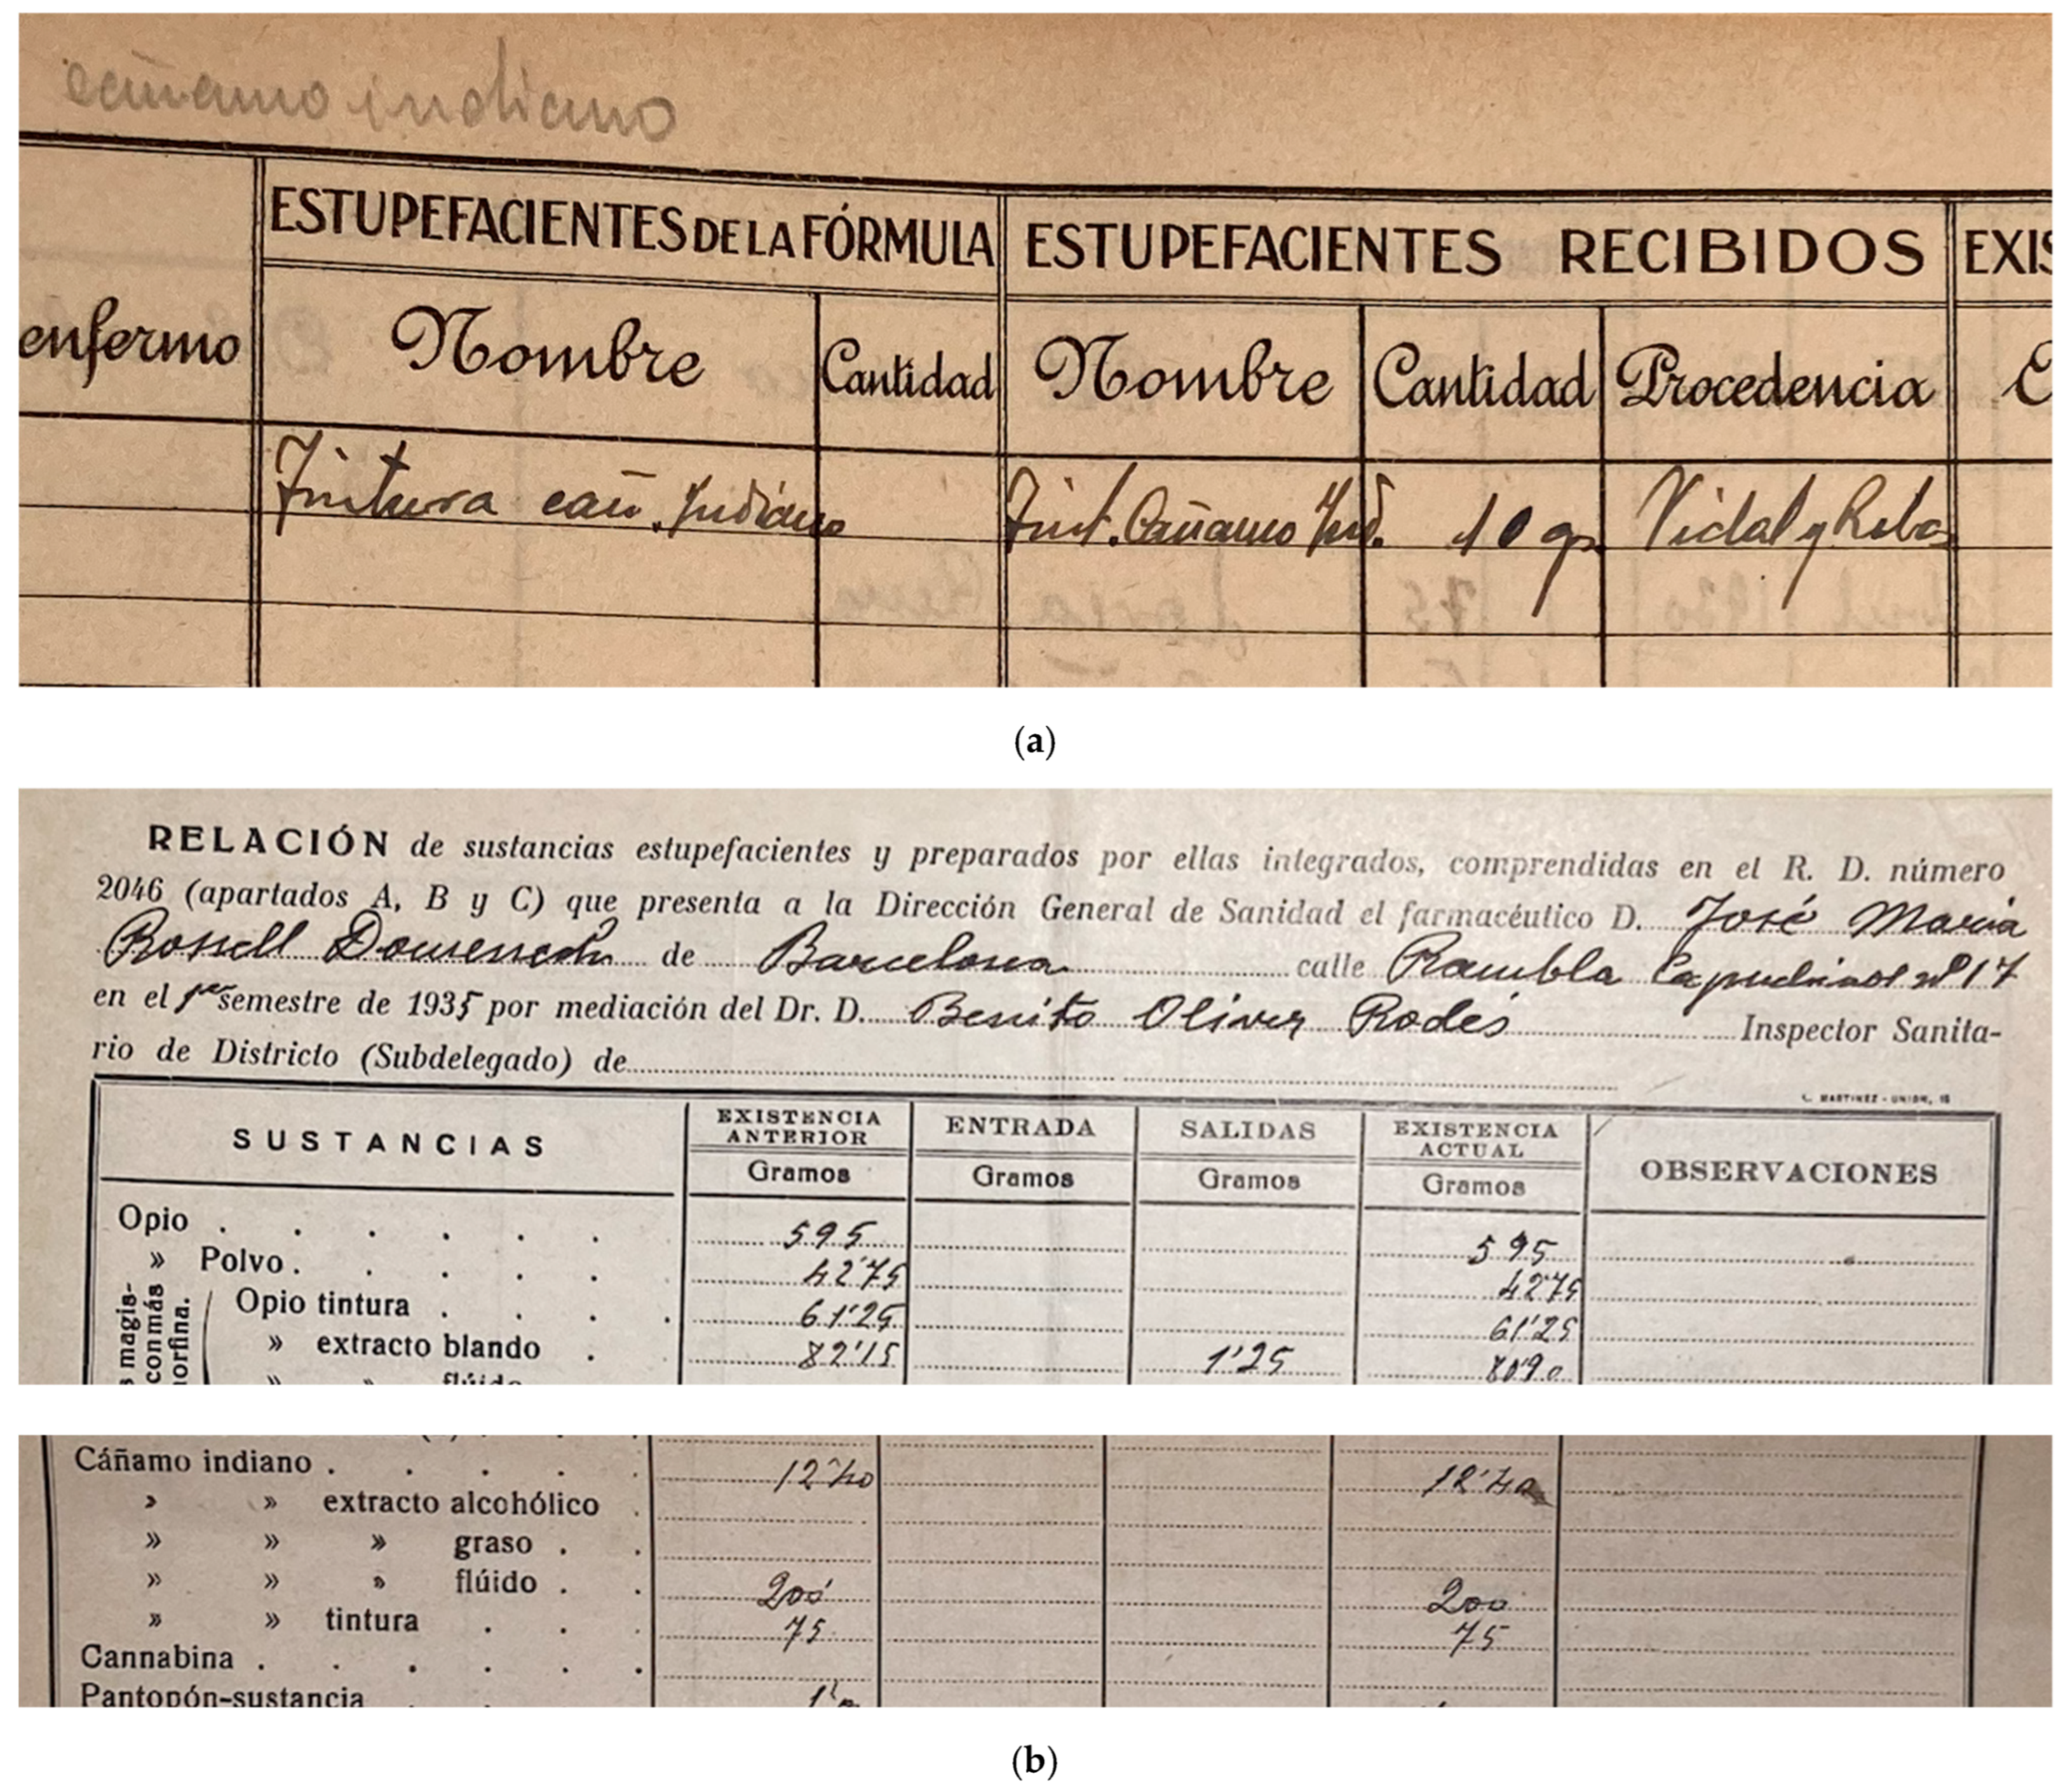 cañamo indiano
ESTUPEFACIENTES DE LA FÓRMULA ESTUPEFACIENTES RECIBIDOS EXIS
enfermo Nombre Cantidad Nombre Cantidad Procedencia C
Tintura cañ. Indiano Tint. Cañamo Ind. 10 gr. Vidal y Ribas
(a)
RELACIÓN de sustancias estupefacientes y preparados por ellas integrados, comprendidas en el R. D. número
2046 (apartados A, B y C) que presenta a la Dirección General de Sanidad el farmacéutico D. José Maria
Rossell Domenech de Barcelona calle Rambla Capuchinos nº 17
en el 1er semestre de 1935 por mediación del Dr. D. Benito Oliver Rodés Inspector Sanita-
rio de Districto (Subdelegado) de
L. MARTINEZ - UNION, 15
SUSTANCIAS EXISTENCIA ANTERIOR ENTRADA SALIDAS EXISTENCIA ACTUAL OBSERVACIONES
Gramos Gramos Gramos Gramos
Opio . . . . . . 595 595
» Polvo . . . . . 42'75 42'75
Opio tintura . . . . 61'25 61'25
» extracto blando . . 82'15 1'25 80'90
» » flúido
s magis-
conmás
orfina.
Cáñamo indiano . . . . . 12'40 12'40
» » extracto alcohólico .
» » » graso . .
» » » flúido . . 200 200
» » tintura . . . 75 75
Cannabina . . . . . .
Pantopón-sustancia
(b)